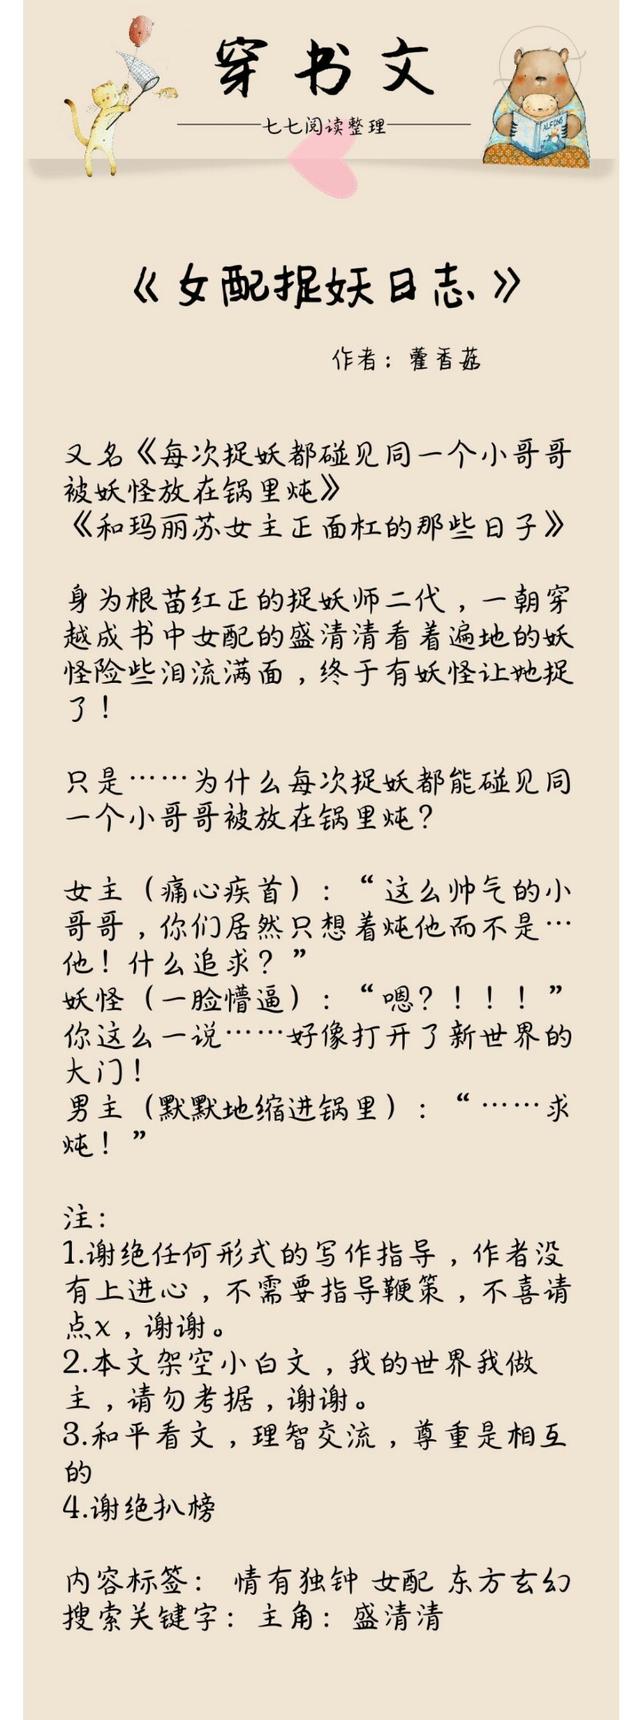 穿书文
七七阅读整理
ALFONS
《女配捉妖日志》
作者：藿香菇
又名《每次捉妖都碰见同一个小哥哥
被妖怪放在锅里炖》
《和玛丽苏女主正面杠的那些日子》
身为根苗红正的捉妖师二代，一朝穿
越成书中女配的盛清清看着遍地的妖
怪险些泪流满面，终于有妖怪让她捉
了！
只是……为什么每次捉妖都能碰见同
一个小哥哥被放在锅里炖？
女主（痛心疾首）：“这么帅气的小
哥哥，你们居然只想着炖他而不是…
他！什么追求？”
妖怪（一脸懵逼）：“嗯？！！！”
你这么一说……好像打开了新世界的
大门！
男主（默默地缩进锅里）：“……求
炖！”
注：
1.谢绝任何形式的写作指导，作者没
有上进心，不需要指导鞭策，不喜请
点x，谢谢。
2.本文架空小白文，我的世界我做
主，请勿考据，谢谢。
3.和平看文，理智交流，尊重是相互
的
4.谢绝扒榜
内容标签： 情有独钟 女配 东方玄幻
搜索关键字：主角：盛清清